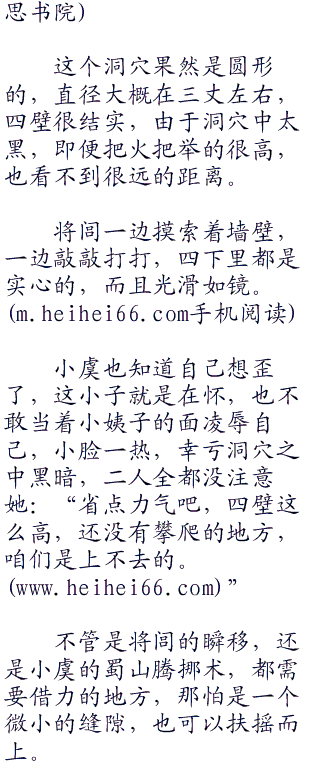 思书院)
这个洞穴果然是圆形
的，直径大概在三丈左右，
四壁很结实，由于洞穴中太
黑，即便把火把举的很高，
也看不到很远的距离。
将闾一边摸索着墙壁，
一边敲敲打打，四下里都是
实心的，而且光滑如镜。
(m.heihei66.com手机阅读)
小虞也知道自己想歪
了，这小子就是在怀，也不
敢当着小姨子的面凌辱自
己，小脸一热，幸亏洞穴之
中黑暗，二人全都没注意
她：“省点力气吧，四壁这
么高，还没有攀爬的地方，
咱们是上不去的。
(www.heihei66.com)”
不管是将闾的瞬移，还
是小虞的蜀山腾挪术，都需
要借力的地方，那怕是一个
微小的缝隙，也可以扶摇而
上。